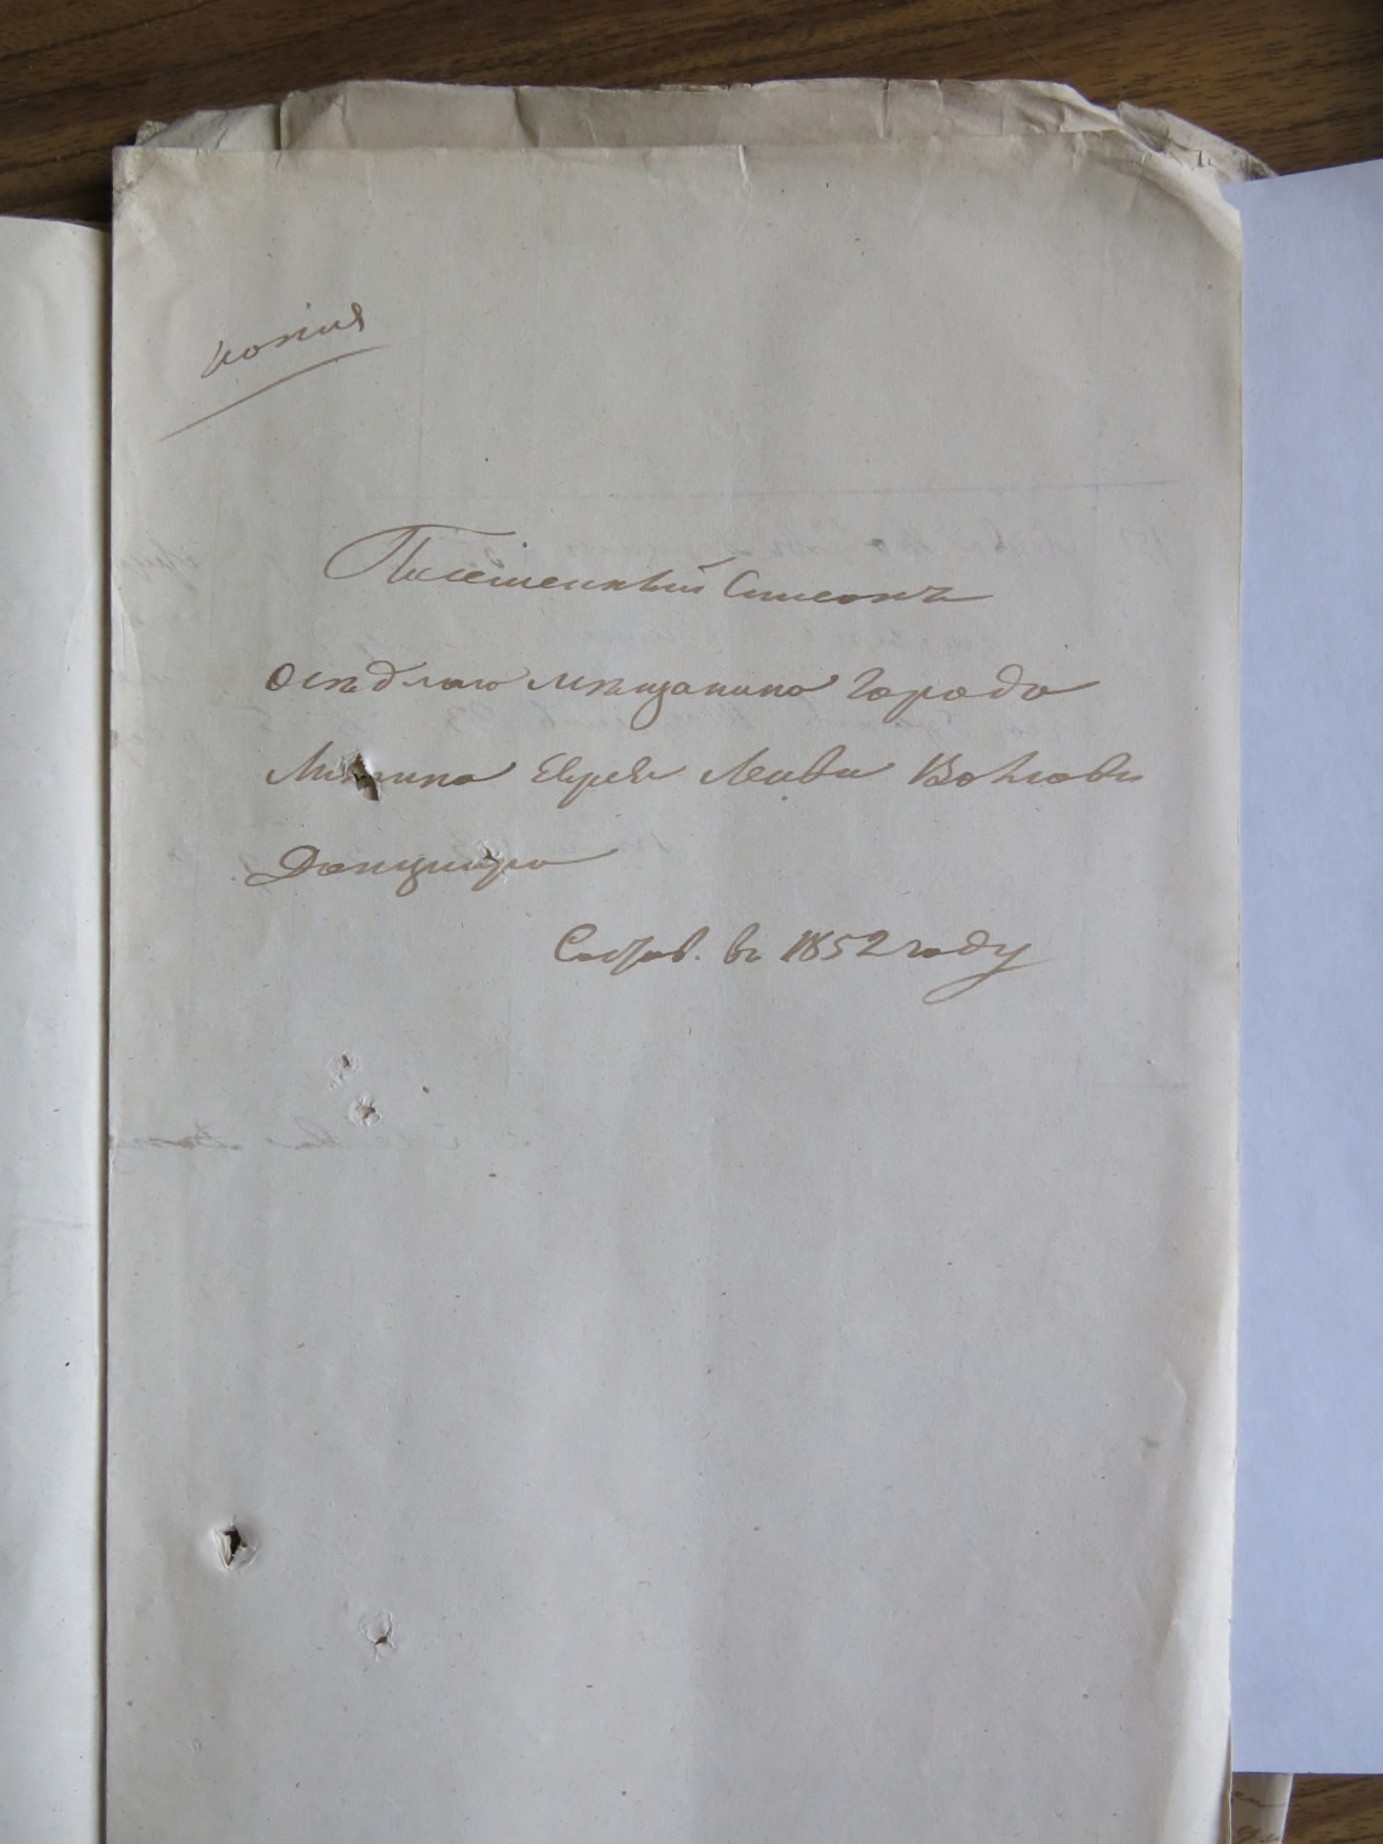 копія
Посемейный Списокъ
осѣдлаго мѣщанина города
Еврея Лейви Вольова
Данцигера
Состав. въ 1852 году